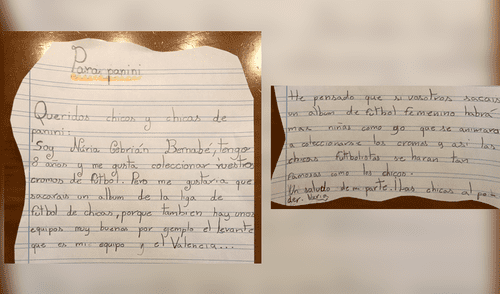 Para panini
Queridos chicos y chicas de
panini:
Soy Nuria Cabrián Bernabé, tengo
8 años y me gusta coleccionar vuestros
cromos de fútbol. Pero me gustaria que
sacarais un album de la liga de
fútbol de chicas, porque tambien hay unos
equipos muy buenos por ejemplo el levante
que es mi equipo y el Valencia...
He pensado que si vosotros sacais
un álbum de fútbol femenino habra
mas niñas como yo que se animaran
a coleccionarse los cromos y asi las
chicas futbolistas se haran tan
famosas como los chicos.
Un saludo de mi parte. ¡las chicas al poder. Nuria